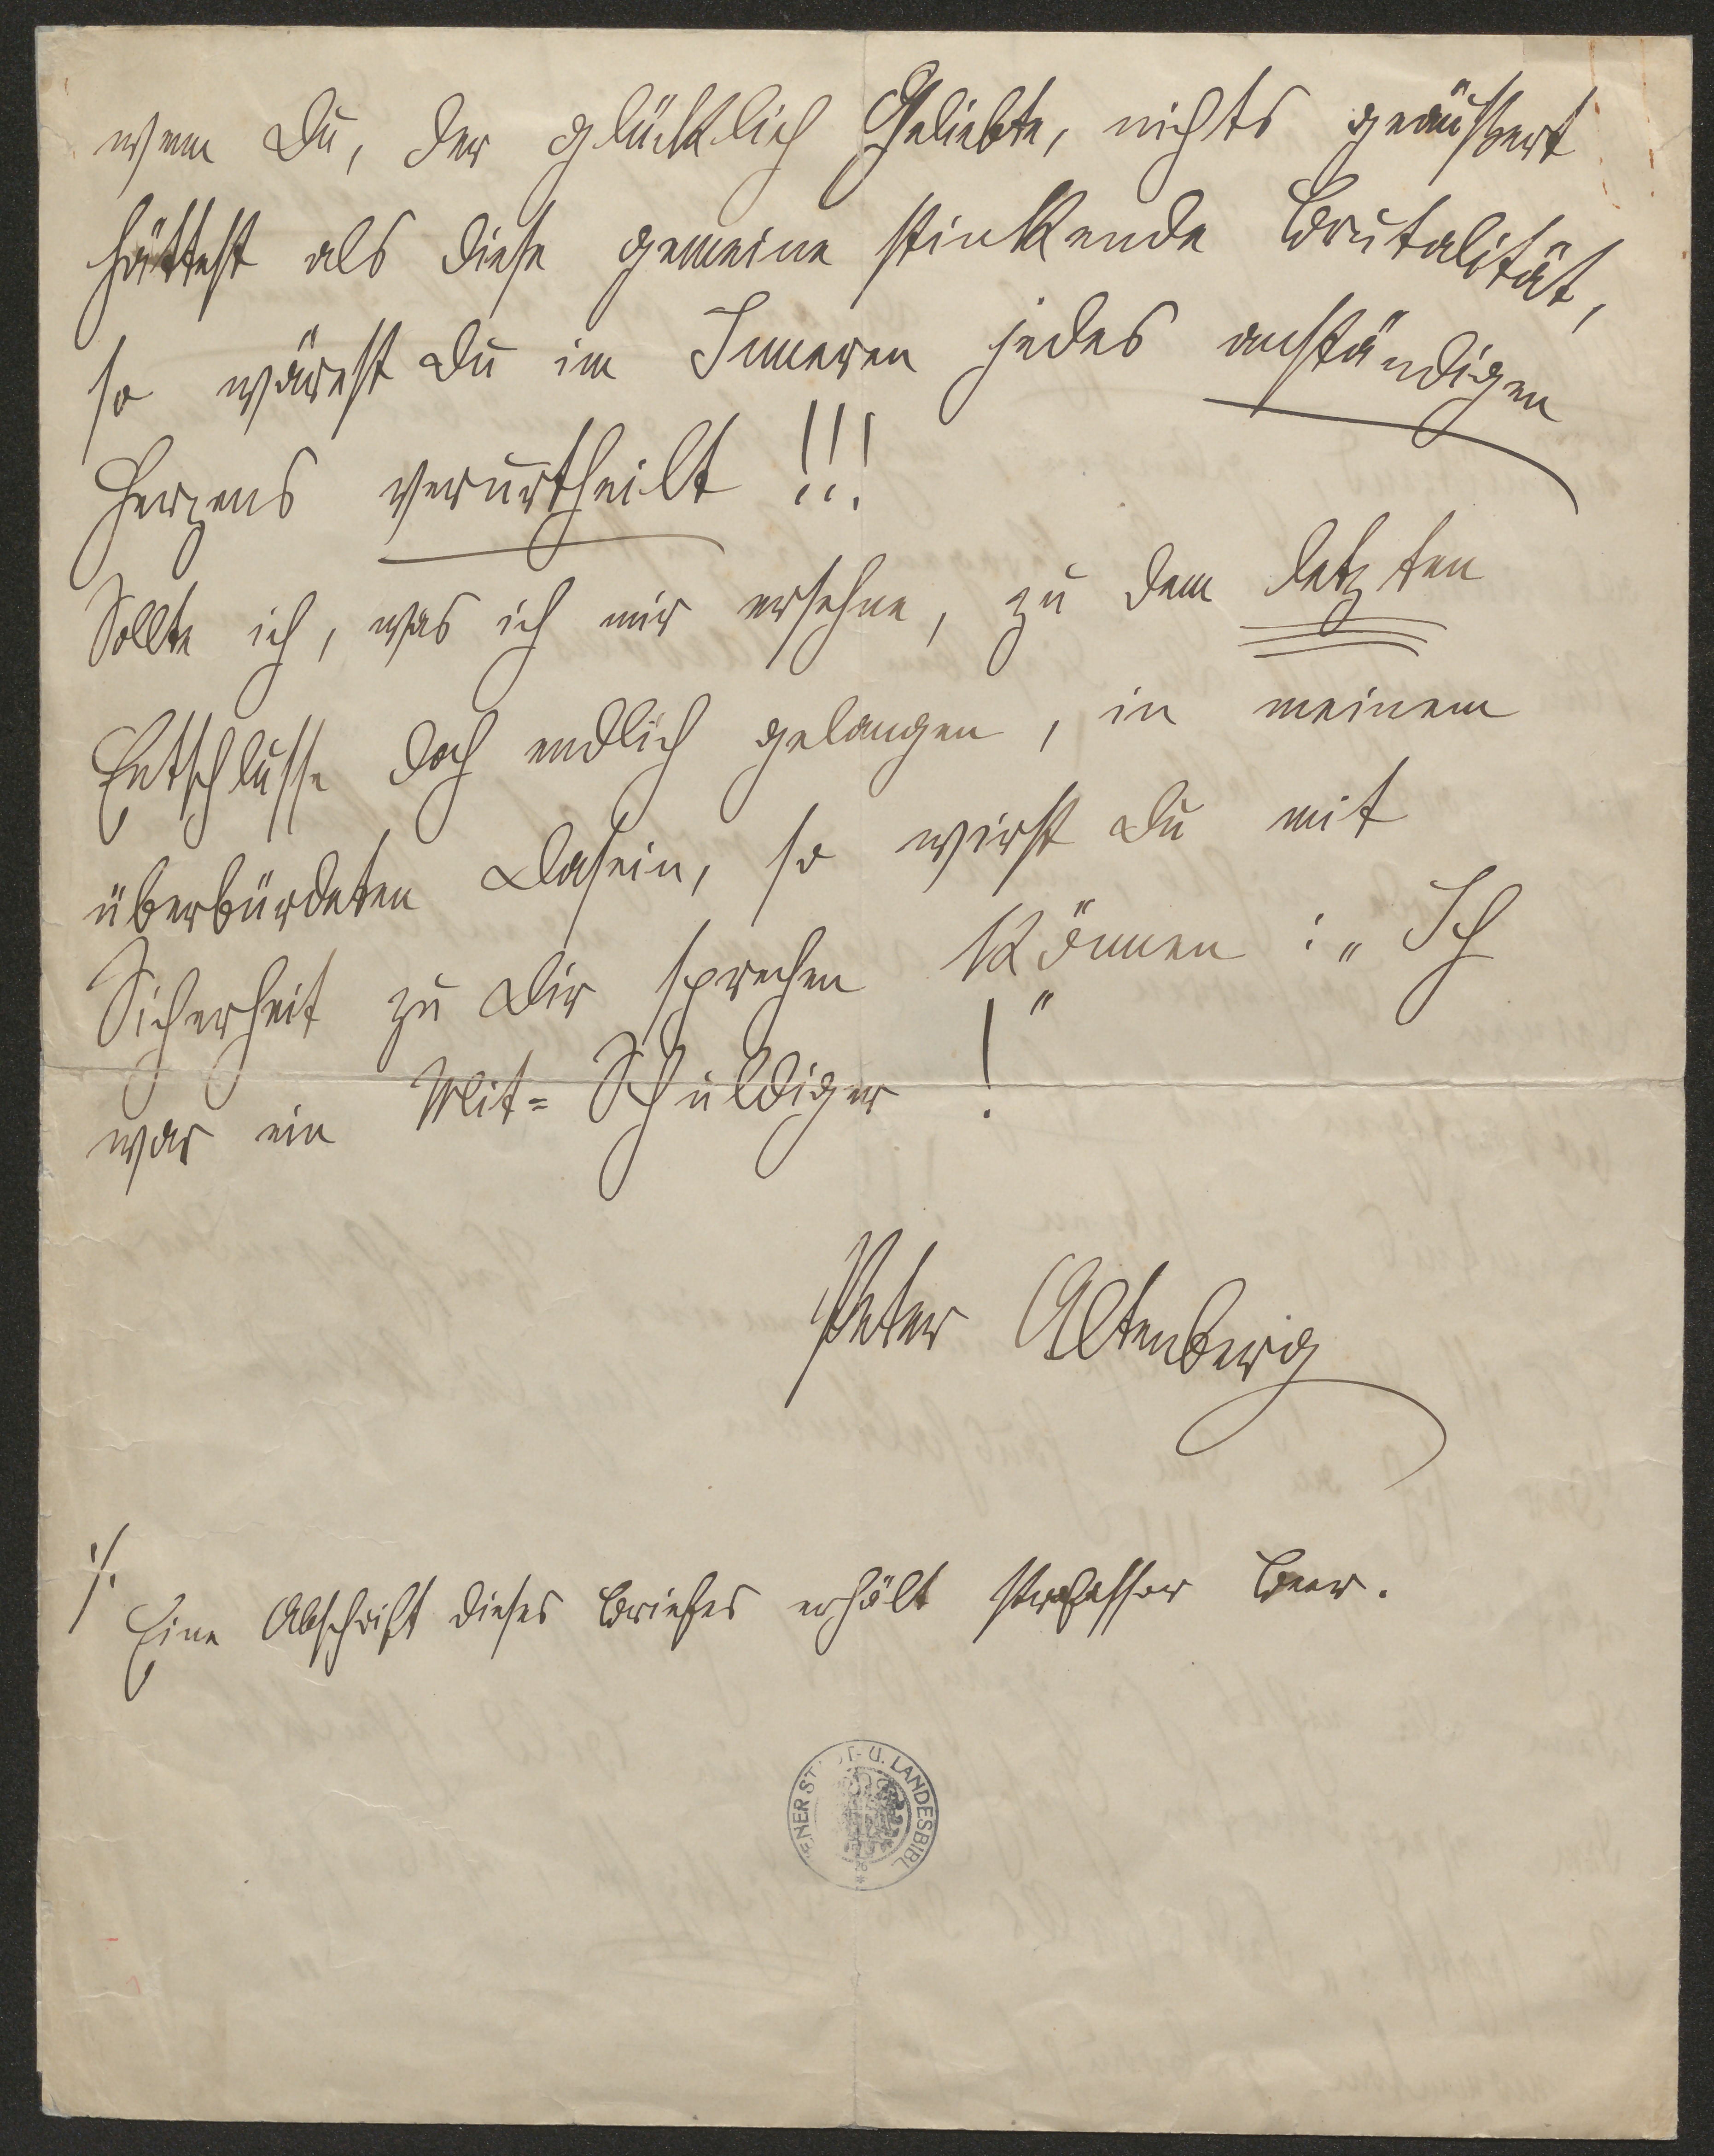 wenn Du, der glücklich Geliebte, nichts geäußert
hättest als diese gemeine stinkende Brutalität,
so wärest Du im Inneren jedes anständigen
Herzens verurtheilt !!!
Sollte ich, was ich mir ersehne, zu dem letzten
Entschlusse doch endlich gelangen, in meinem
überbürdeten Dasein, so wirst Du mit
Sicherheit zu Dir sprechen können: „Ich
war ein Mit=Schuldiger!"
Peter Altenberg
./.
Eine Abschrift dieses Briefes erhält Professor Beer.
ENER ST T- U. LANDESBIBL